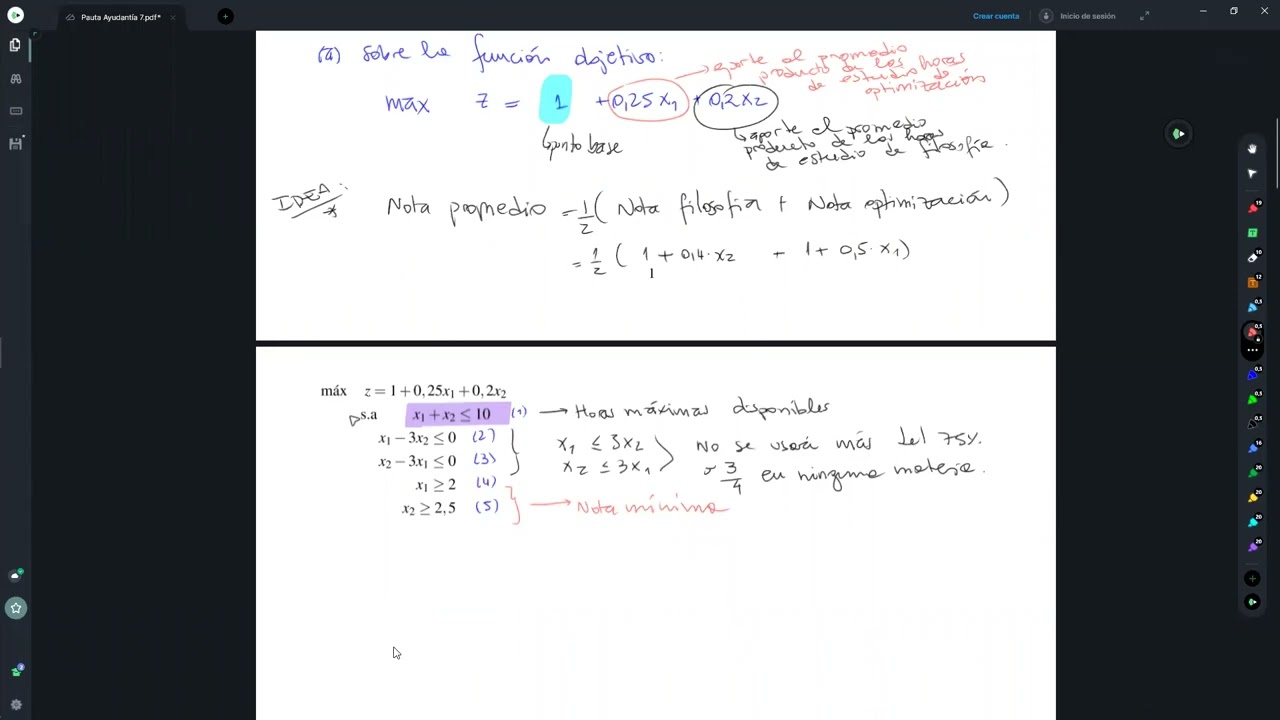 Pauta Ayudantía 7.pdf*
Crear cuenta
Inicio de sesión
(a) Sobre la función objetivo:
máx z = 1 + 0,25 x₁ + 0,2 x₂
→ aporte al promedio
producto de las horas
de estudio de
optimización
↳ punto base
↳ aporte al promedio
producto de las horas
de estudio de filosofía.
IDEA:
*
Nota promedio = 1/2 ( Nota filosofía + Nota optimización )
= 1/2 ( 1 + 0,4 · x₂ + 1 + 0,5 · x₁ )
máx z = 1 + 0,25x₁ + 0,2x₂
s.a x₁ + x₂ ≤ 10 (1) → Horas máximas disponibles
x₁ − 3x₂ ≤ 0 (2)
x₂ − 3x₁ ≤ 0 (3)
x₁ ≤ 3x₂
x₂ ≤ 3x₁
No se usará más del 75%.
o 3/4 en ninguna materia.
x₁ ≥ 2 (4)
x₂ ≥ 2,5 (5)
→ Nota mínima